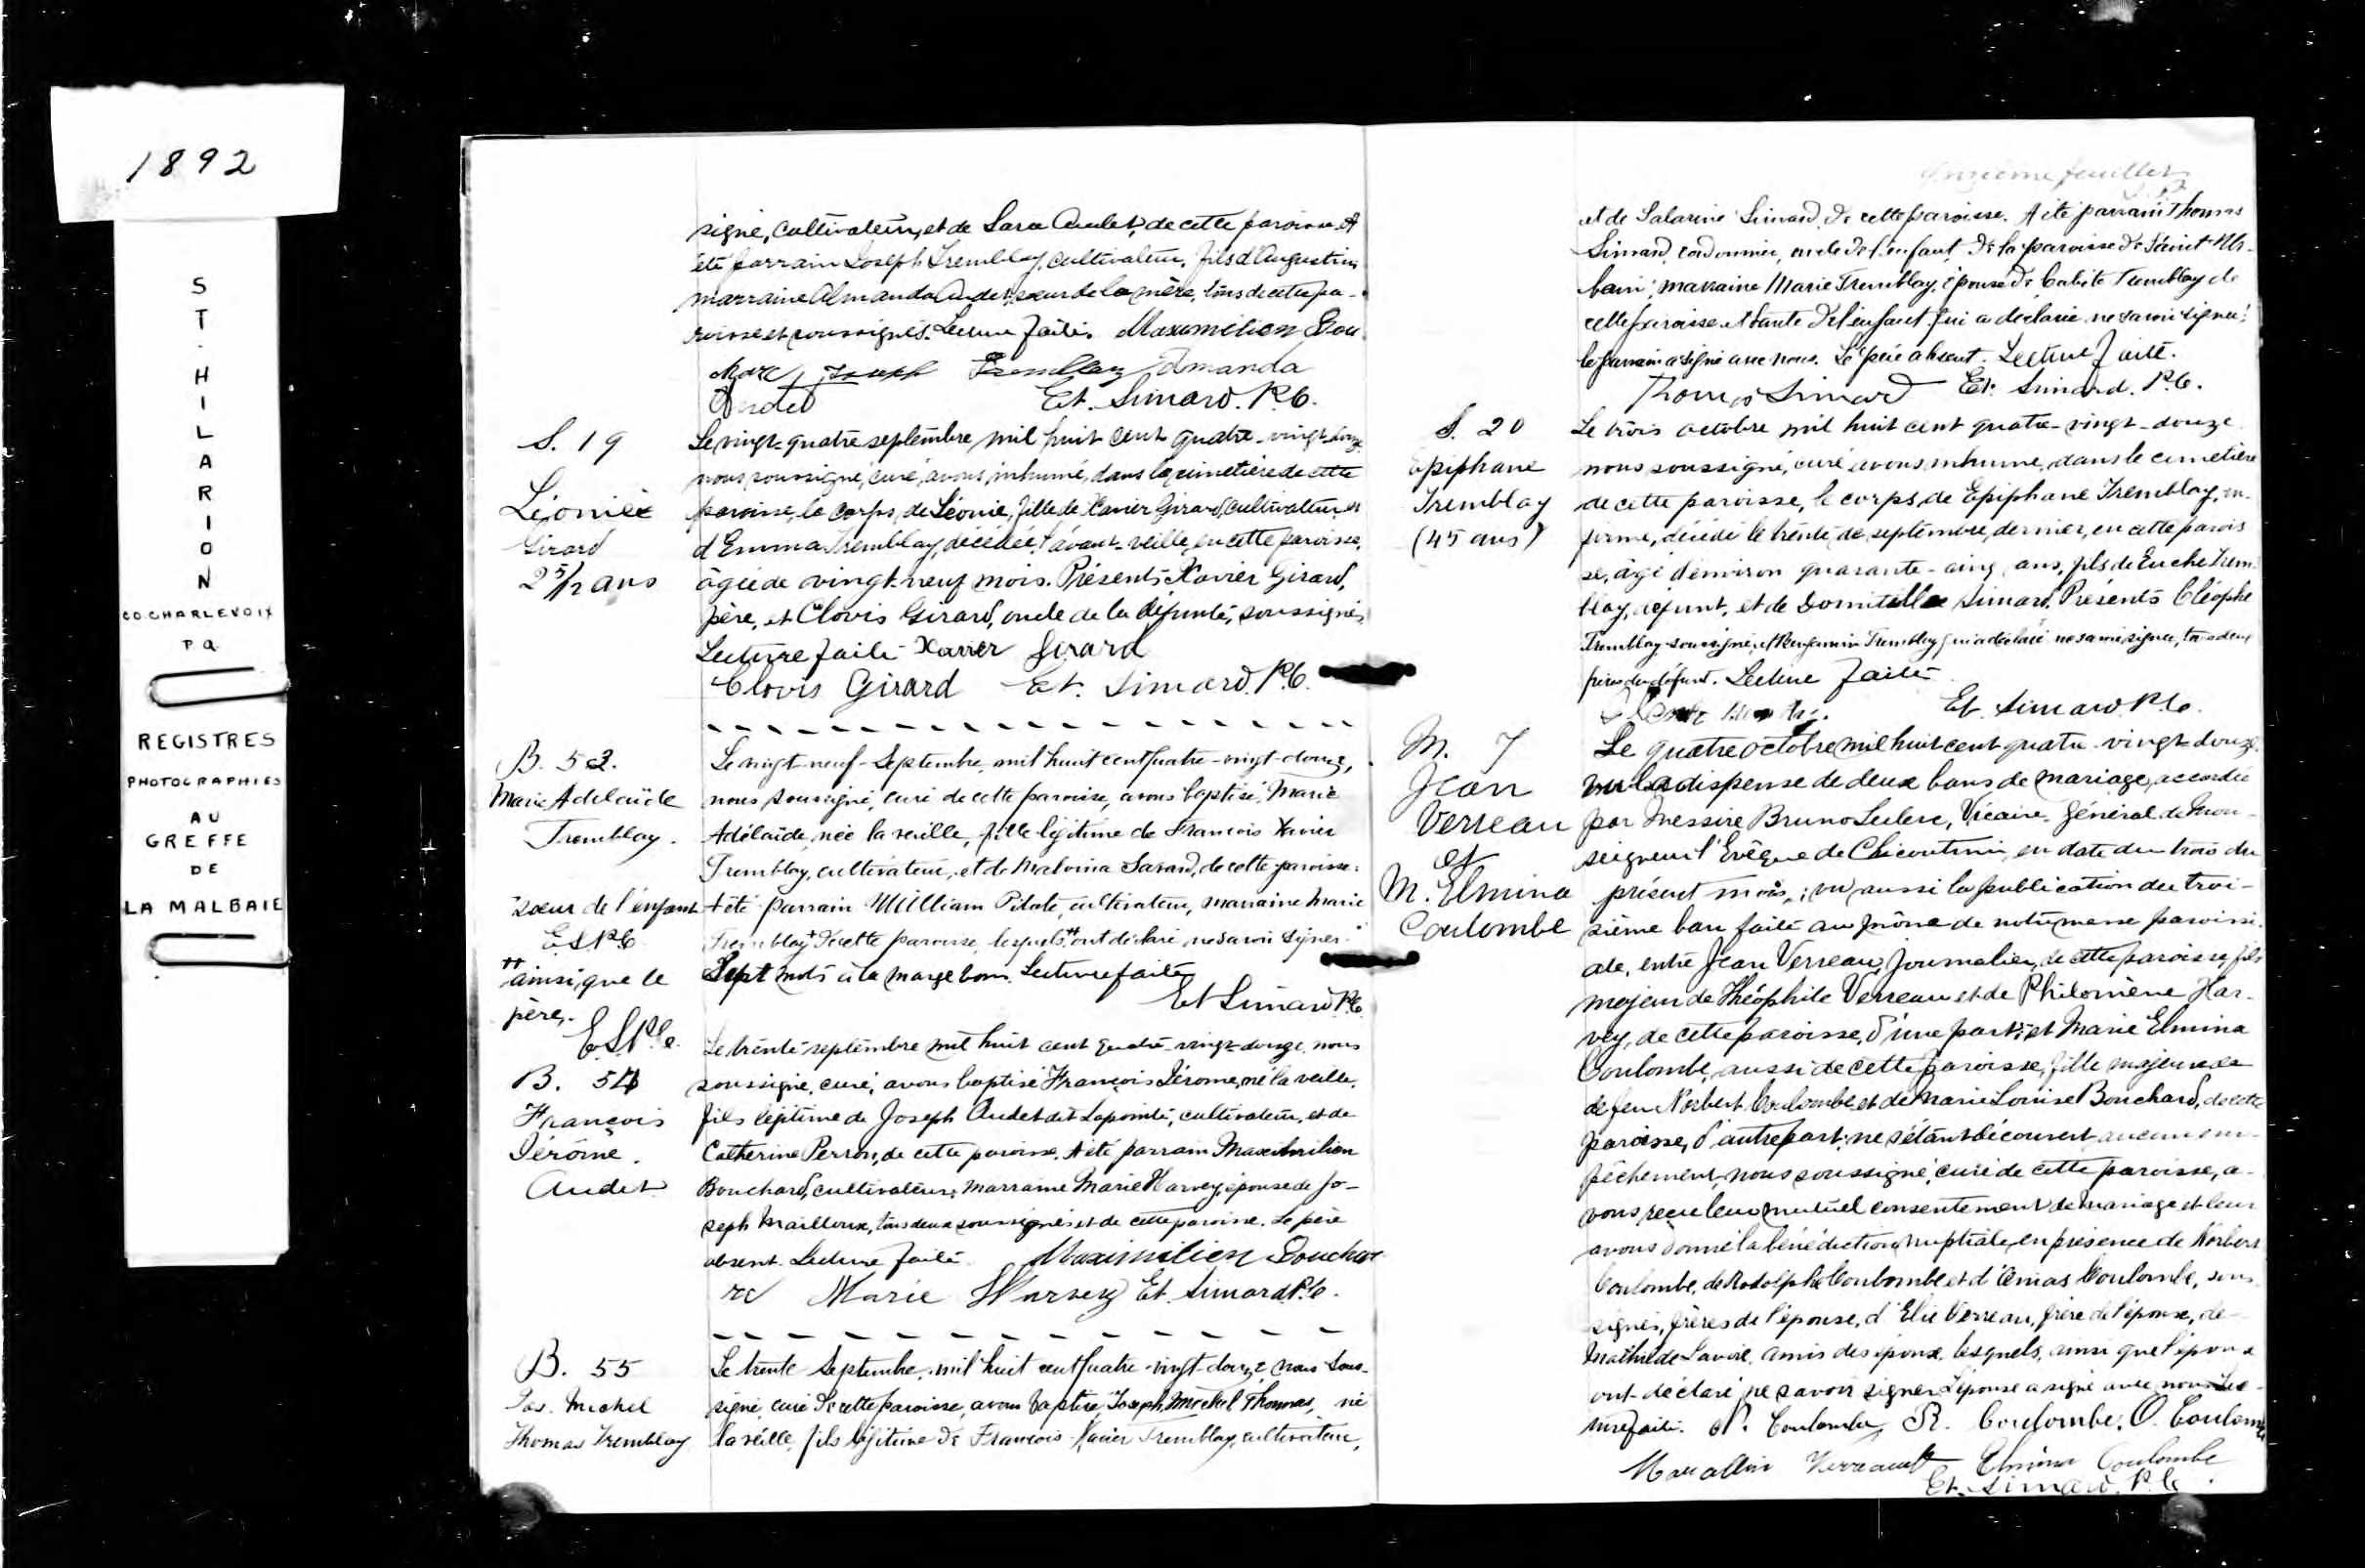 1892
ST. HILARION
CO. CHARLEVOIX
P Q
REGISTRES
PHOTOGRAPHIES
AU
GREFFE
DE
LA MALBAIE
signé, cultivateur, et de Sara Audet, de cette paroisse. A
été parrain Joseph Tremblay, cultivateur, fils d'Augustin
marraine Almanda Audet, soeur de la mère, tous de cette pa-
roisse et soussignés. Lecture faite. Maximilien Bou
Joseph Tremblay Amanda
Audet Et. Simard. P.C.
S. 19
Léonie
Girard
2 5/12 ans
Le vingt-quatre septembre mil huit cent quatre-vingt-douze
nous soussigné, curé, avons inhumé, dans le cimetière de cette
paroisse, le corps de Léonie, fille de Xavier Girard, cultivateur, et
d'Emma Tremblay, décédée l'avant-veille, en cette paroisse,
âgée de vingt-neuf mois. Présents Xavier Girard,
père, et Clovis Girard, oncle de la défunte, soussignés
Lecture faite Xavier Girard
Clovis Girard Et. Simard. P.C.
B. 53.
Marie Adelaïde
Tremblay.
soeur de l'enfant
E.S.P.C
++
ainsi que le
père,.
E.S.P.C.
Le vingt-neuf-Septembre mil huit cent quatre-vingt-douze,
nous soussigné, curé de cette paroisse, avons baptisé, Marie
Adélaïde, née la veille, fille légitime de François Xavier
Tremblay, cultivateur, et de Malvina Savard, de cette paroisse.
A été parrain William Pilote, cultivateur, marraine Marie
Tremblay+ de cette paroisse, lesquels++ ont déclaré ne savoir signer.
Sept mots à la marge bons. Lecture faite
Et Simard P.C.
B. 54
François
Jérôme.
Audet
Le trente septembre mil huit cent quatre-vingt-douze, nous
soussigné, curé, avons baptisé François Jérome, né la veille,
fils légitime de Joseph Audet dit Lapointe, cultivateur, et de
Catherine Perron, de cette paroisse. A été parrain Maximilien
Bouchard, cultivateur, marraine Marie Harvey, épouse de Jo-
seph Mailloux, tous deux soussignés et de cette paroisse. Le père
absent. Lecture faite Maximilien Bouchar
rd Marie Harvey Et. Simard P.C.
B. 55
Jos. Michel
Thomas Tremblay
Le trente Septembre mil huit cent quatre-vingt-douze nous sous-
signé, curé de cette paroisse, avons baptisé Joseph Michel Thomas, né
la veille, fils légitime de François Xavier Tremblay, cultivateur,
onzième feuillet
et de Salarine Simard, de cette paroisse. A été parrain Thomas
Simard, cordonnier, oncle de l'enfant, de la paroisse de Saint Ur-
bain, marraine Marie Tremblay, épouse de Calixte Tremblay de
cette paroisse et tante de l'enfant qui a déclaré ne savoir signer:
le parrain a signé avec nous. Le père absent. Lecture faite.
Thomas Simard Et. Simard. P.C.
S. 20
Epiphane
Tremblay
(45 ans)
Le trois octobre mil huit cent quatre-vingt-douze
nous soussigné, curé avons inhumé, dans le cimetière
de cette paroisse, le corps de Epiphane Tremblay, in-
firme, décédé le trente de septembre dernier, en cette parois
se, âgé d'environ quarante-cinq ans, fils de Euche Trem
blay, défunt, et de Domitille Simard. Présents Cléophe
Tremblay soussigné, et Benjamin Tremblay qui a déclaré ne savoir signer, tous deux
frères du défunt. Lecture faite
Et. Simard P.C.
M. 7
Jean
Verreau
et
M. Elmina
Coulombe
Le quatre octobre mil huit cent quatre-vingt-douze.
vu la dispense de deux bans de mariage, accordée
par Messire Bruno Leclerc, Vicaire-Général de Mon-
seigneur l'Evêque de Chicoutimi, en date du trois du
présent mois; vu aussi la publication du troi-
sième ban faite au prône de notre messe paroissi-
ale, entre Jean Verreau, Journalier, de cette paroisse, fils
majeur de Théophile Verreau et de Philomène Har-
vey, de cette paroisse, d'une part; et Marie Elmina
Coulombe, aussi de cette paroisse, fille majeure de
de feu Norbert Coulombe et de Marie Louise Bouchard, de cette
paroisse, d'autre part; ne s'étant découvert aucun em-
pêchement, nous soussigné, curé de cette paroisse, a-
vons reçu leur mutuel consentement de mariage et leur
avons donné la bénédiction nuptiale, en présence de Norbert
Coulombe, de Rodolphe Coulombe et d'Onias Coulombe, sous
signés, frères de l'épouse, d'Elie Verreau, frère de l'époux, de
Mathilde Lavoie, amis des époux, lesquels, ainsi que l'époux
ont déclaré ne savoir signer. L'épouse a signé avec nous. Lec-
ture faite. N. Coulombe, R. Coulombe. O. Coulombe
Verreault Elmina Coulombe
Et. Simard. P.C.